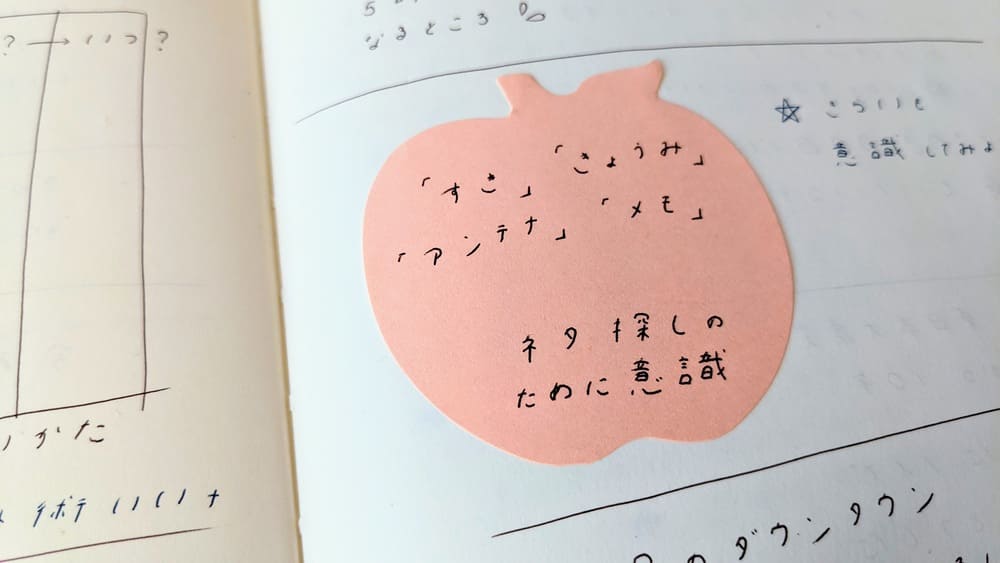 ? → いつ ?
りかた
テボテ いいナ
なるところ
「すき」 「きょうみ」
「アンテナ」 「メモ」
ネタ探しの
ために意識
☆ こういうも
意識してみよ
のダウンタウン